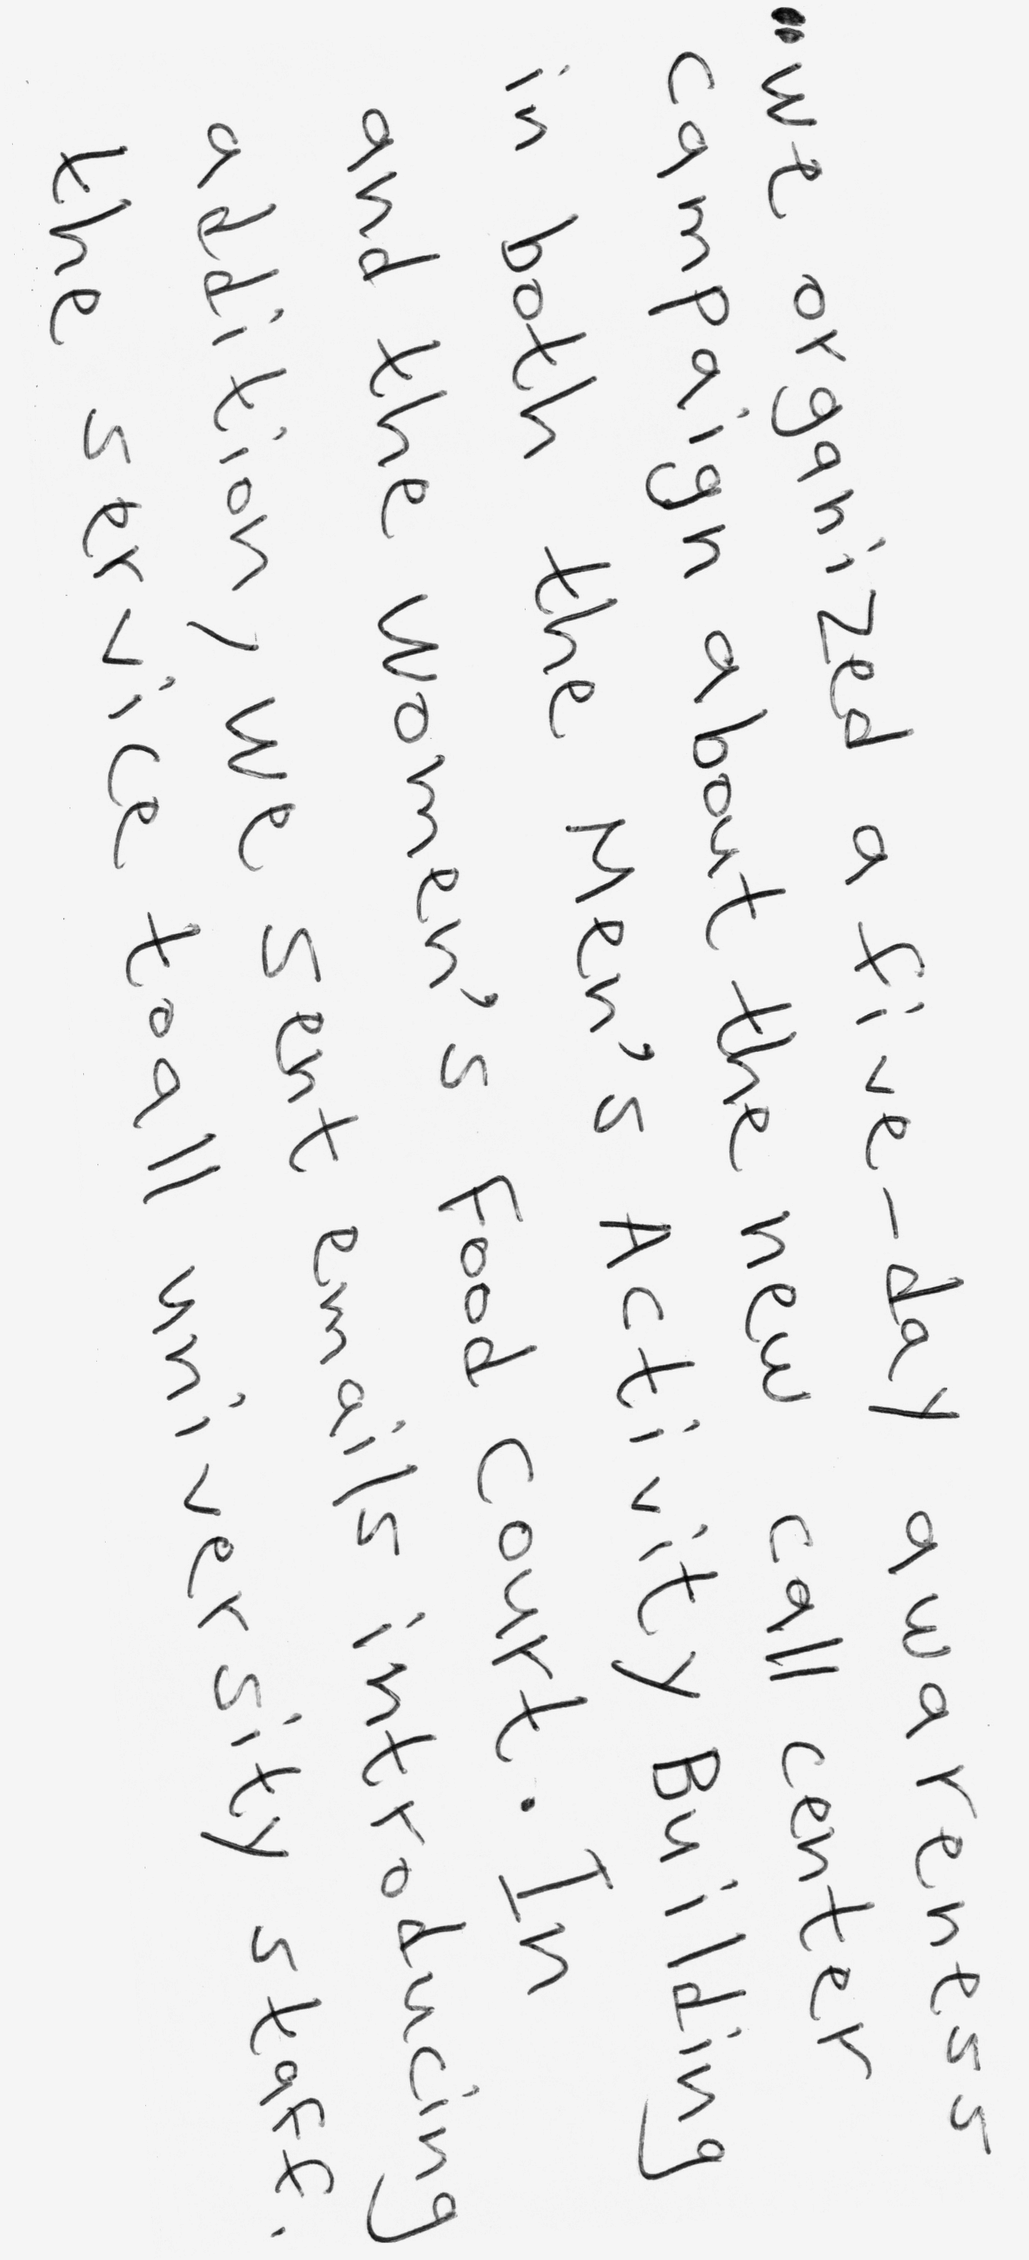 "We organized a five-day awareness
campaign about the new call center
in both the Men's Activity Building
and the Women's Food Court. In
addition, we sent emails introducing
the service to all university staff.